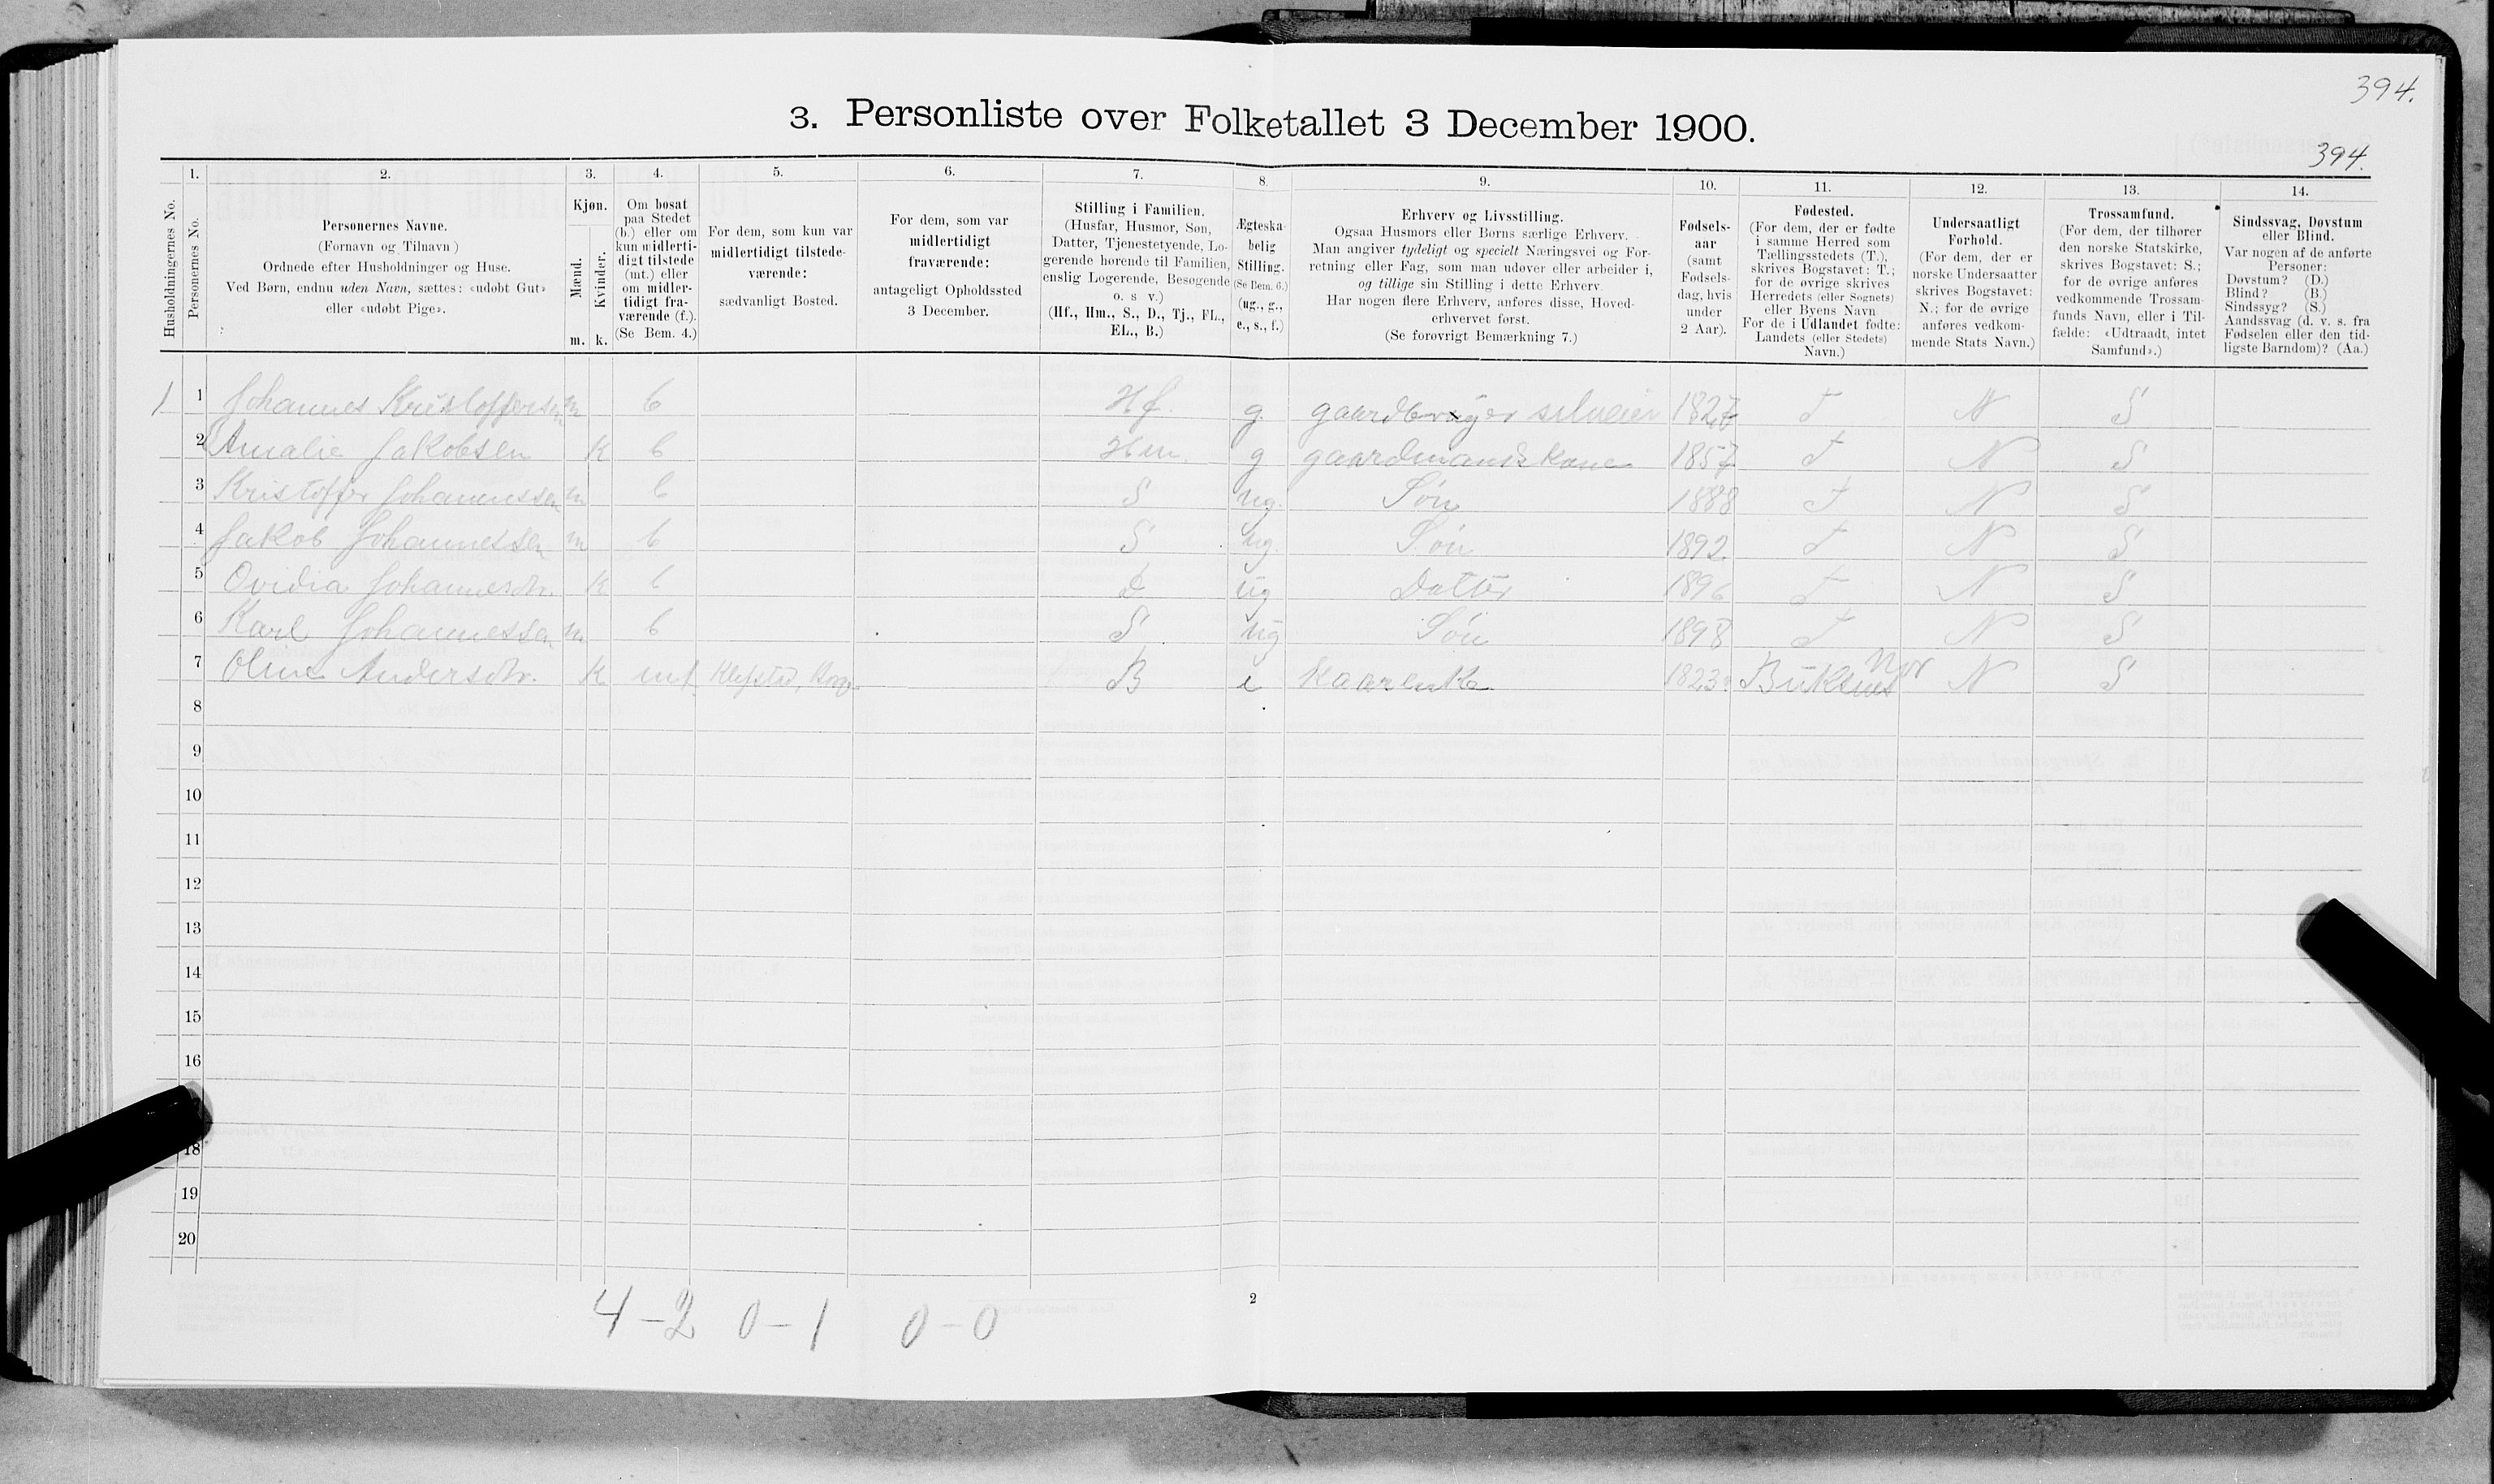 394.
3. Personliste over Folketallet 3 December 1900.
394.
Husholdningernes No.
1.
Personernes No.
2.
Personernes Navne.
(Fornavn og Tilnavn)
Ordnede efter Husholdninger og Huse.
Ved Børn, endnu uden Navn, sættes: «udøbt Gut»
eller «udøbt Pige».
3.
Kjøn.
Mænd.
Kvinder.
m. k.
4.
Om bosat
paa Stedet
(b.) eller om
kun midlerti-
digt tilstede
(mt.) eller
om midler-
tidigt fra-
værende (f.).
(Se Bem. 4.)
5.
For dem, som kun var
midlertidigt tilstede-
værende:
sædvanligt Bosted.
6.
For dem, som var
midlertidigt
fraværende:
antageligt Opholdssted
3 December.
7.
Stilling i Familien.
(Husfar, Husmor, Søn,
Datter, Tjenestetyende, Lo-
gerende hørende til Familien,
enslig Logerende, Besøgende
o. s v.)
(Hf., Hm., S., D., Tj., FL.,
EL., B.)
8.
Ægteska-
belig
Stilling.
(Se Bem. 6.)
(ug., g.,
e., s., f.)
9.
Erhverv og Livsstilling.
Ogsaa Husmors eller Børns særlige Erhverv.
Man angiver tydeligt og specielt Næringsvei og For-
retning eller Fag, som man udøver eller arbeider i,
og tillige sin Stilling i dette Erhverv.
Har nogen flere Erhverv, anføres disse, Hoved-
erhvervet først.
(Se forøvrigt Bemærkning 7.)
10.
Fødsels-
aar
(samt
Fødsels-
dag, hvis
under
2 Aar).
11.
Fødested.
(For dem, der er fødte
i samme Herred som
Tællingsstedets (T.),
skrives Bogstavet: T.;
for de øvrige skrives
Herredets (eller Sognets)
eller Byens Navn
For de i Udlandet fødte:
Landets (eller Stedets)
Navn.)
12.
Undersaatligt
Forhold.
(For dem, der er
norske Undersaatter
skrives Bogstavet:
N.; for de øvrige
anføres vedkom-
mende Stats Navn.)
13.
Trossamfund.
(For dem, der tilhører
den norske Statskirke,
skrives Bogstavet: S.;
for de øvrige anføres
vedkommende Trossam-
funds Navn, eller i Til-
fælde: «Udtraadt, intet
Samfund».)
14.
Sindssvag, Døvstum
eller Blind.
Var nogen af de anførte
Personer:
Døvstum? (D.)
Blind? (B.)
Sindssyg? (S.)
Aandssvag (d. v. s. fra
Fødselen eller den tid-
ligste Barndom)? (Aa.)
1 1 Johannes Kristoffersen m b Hf. g. gaardbruger selveier 1827 T N S
2 Amalie Jakobsen k b Hm. g gaardmandskone 1857 T N S
3 Kristoffer Johannessen m b S ug. Søn 1888 T N S
4 Jakob Johannessen m b S ug. Søn 1892 T N S
5 Ovidia Johannesdtr. k b D ug Datter 1896 T N S
6 Karl Johannessen m b S ug Søn 1898 T N S
7 Andersdtr. k mt B e Kaarenke 1823 Buksnes N S
8
9
10
11
12
13
14
15
16
18
19
20
4-2 0-1 0-0
2